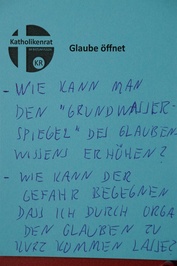 Katholikenrat
KR
Glaube öffnet
- WIE KANN MAN
DEN "GRUNDWASSER-
SPIEGEL" DES GLAUBENS
WISSENS ERHÖHEN?
- WIE KANN DER
GEFAHR BEGEGNEN
DASS ICH DURCH ORGA
DEN GLAUBEN ZU
KURZ KOMMEN LASSE?